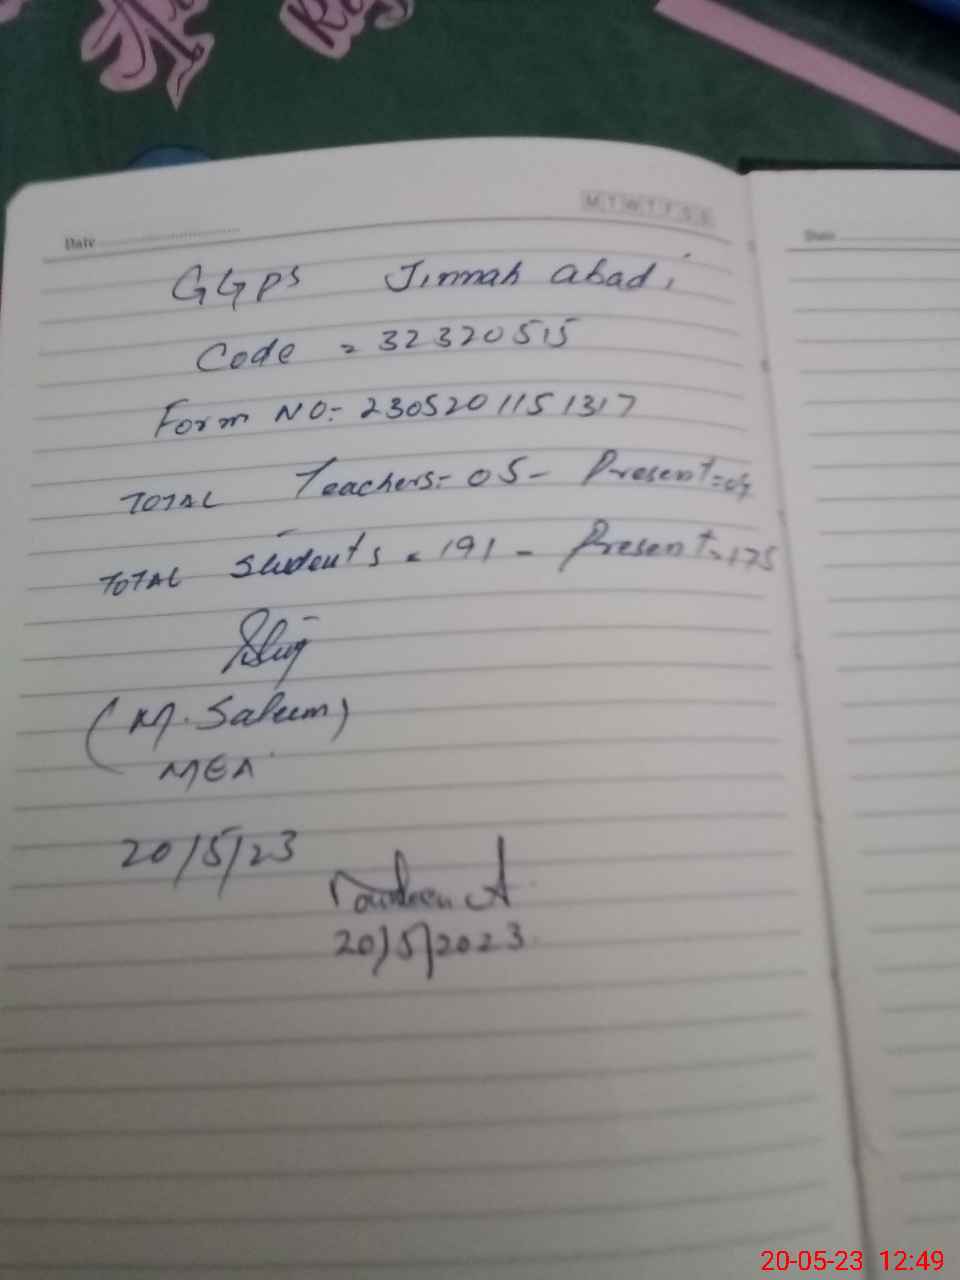 MTWTFSS
Date
Date
GGPS Jinnah abadi
Code = 32320515
Form NO:- 2305201151317
TOTAL Teachers:- 05 - Present = 04
TOTAL Students = 191 - Present = 175
(M. Saleem)
MEA
20/5/23
20/5/2023
20-05-23 12:49